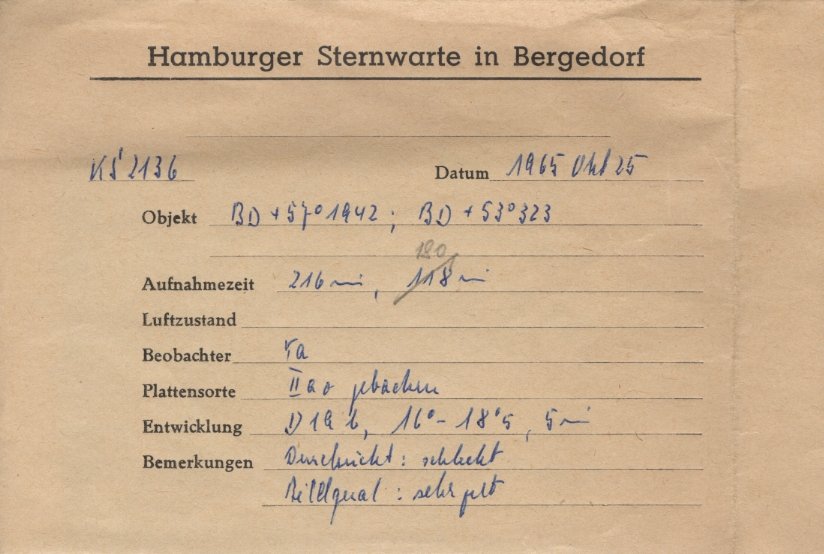 Hamburger Sternwarte in Bergedorf
KS 2136 Datum 1965 Okt 25
Objekt BD +57° 1942 ; BD +53° 323
180
Aufnahmezeit 216 min, 118 min
Luftzustand
Beobachter
Plattensorte II a o gebacken
Entwicklung D 19 b, 16° - 18°5, 5 min
Bemerkungen Durchsicht : schlecht
Bildqual : sehr gut